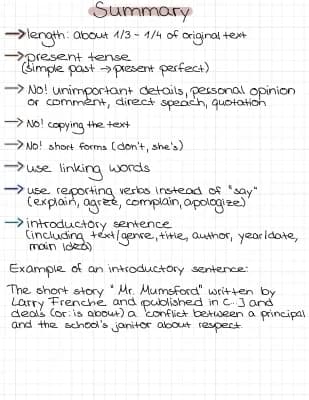 Summary
→length: about 1/3 - 1/4 of original text
→present tense
(simple past → present perfect)
→ No! unimportant details, personal opinion
or comment, direct speach, quotation
→ No! copying the text
→ No! short forms (don't, she's)
→ use linking words
→ use reporting verbs instead of "say"
(explain, agree, complain, apologize)
→ introductory sentence
(including text/genre, title, author, year/date,
main idea)
Example of an introductory sentence:
The short story "Mr. Mumsford" written by
Larry Frenche and published in [...] and
deals (or: is about) a conflict between a principal
and the school's janitor about respect.